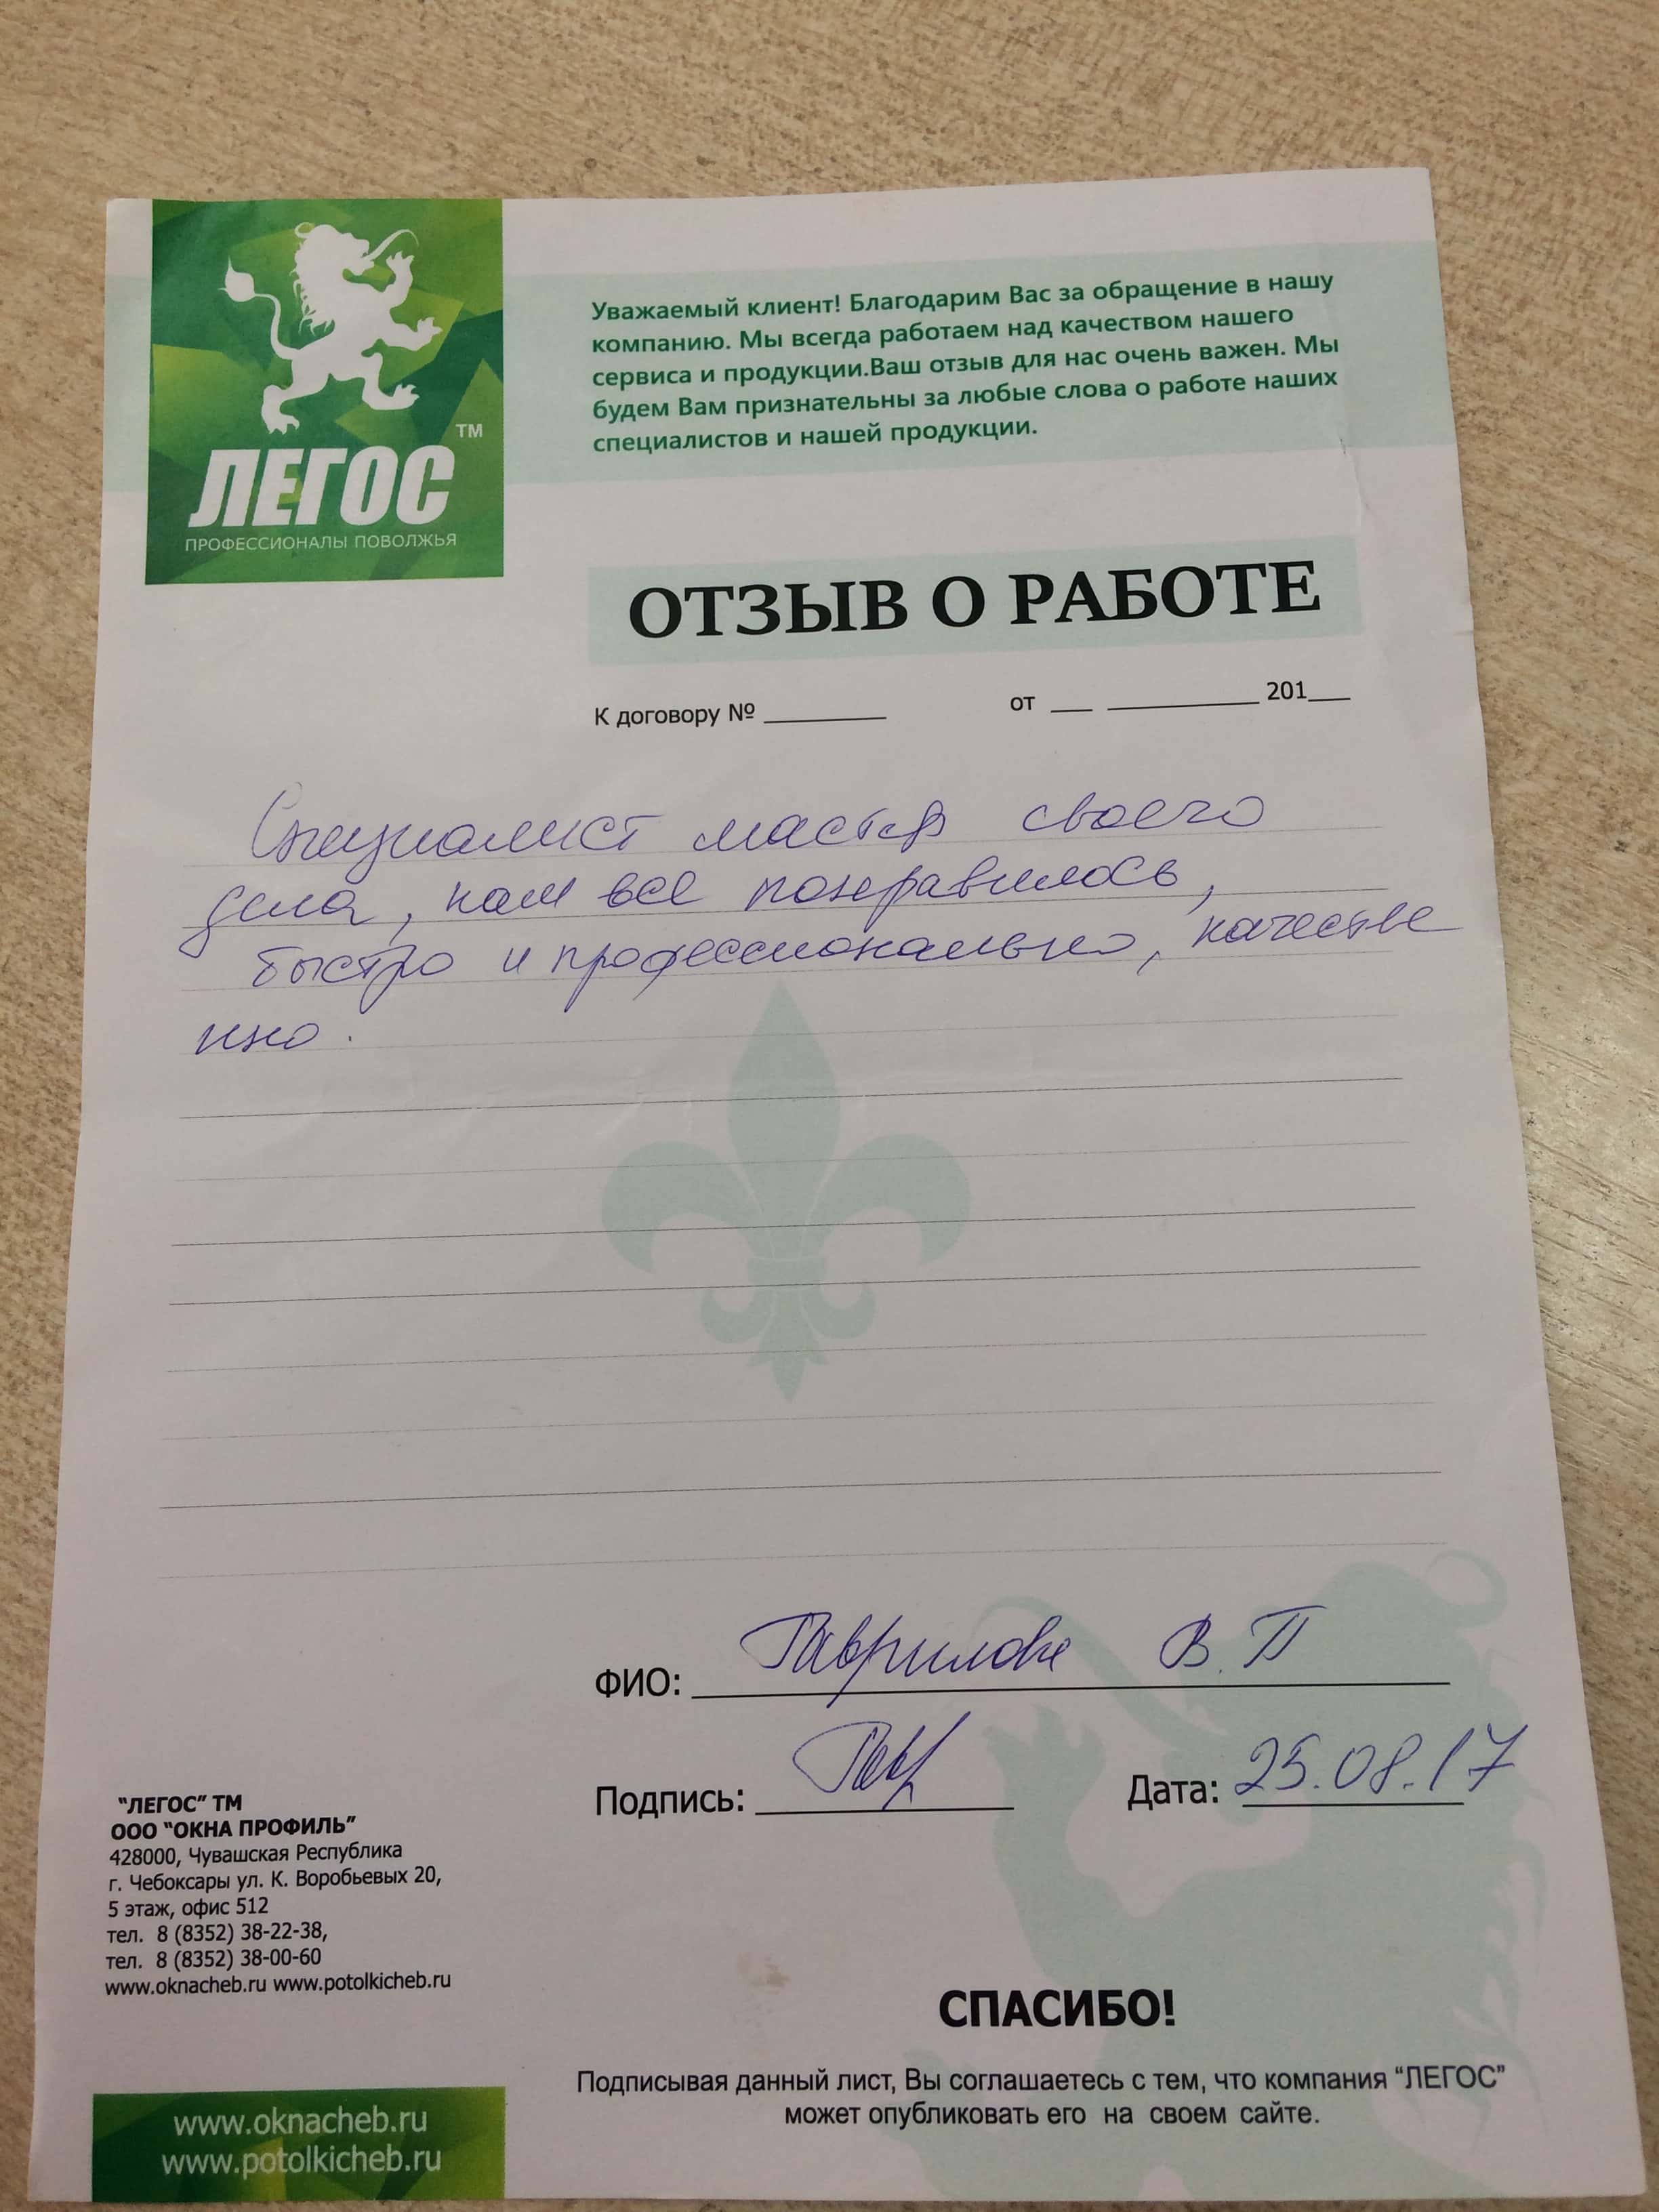 ЛЕГОС ТМ
ПРОФЕССИОНАЛЫ ПОВОЛЖЬЯ
Уважаемый клиент! Благодарим Вас за обращение в нашу
компанию. Мы всегда работаем над качеством нашего
сервиса и продукции.Ваш отзыв для нас очень важен. Мы
будем Вам признательны за любые слова о работе наших
специалистов и нашей продукции.
ОТЗЫВ О РАБОТЕ
К договору № ______ от __ ________ 201__
Специалист мастер своего
дела, нам все понравилось,
быстро и профессионально, качестве
нно.
ФИО: Гаврилова В.П
Подпись: Дата: 25.08.17
"ЛЕГОС" ТМ
ООО "ОКНА ПРОФИЛЬ"
428000, Чувашская Республика
г. Чебоксары ул. К. Воробьевых 20,
5 этаж, офис 512
тел. 8 (8352) 38-22-38,
тел. 8 (8352) 38-00-60
www.oknacheb.ru www.potolkicheb.ru
СПАСИБО!
Подписывая данный лист, Вы соглашаетесь с тем, что компания "ЛЕГОС"
может опубликовать его на своем сайте.
www.oknacheb.ru
www.potolkicheb.ru